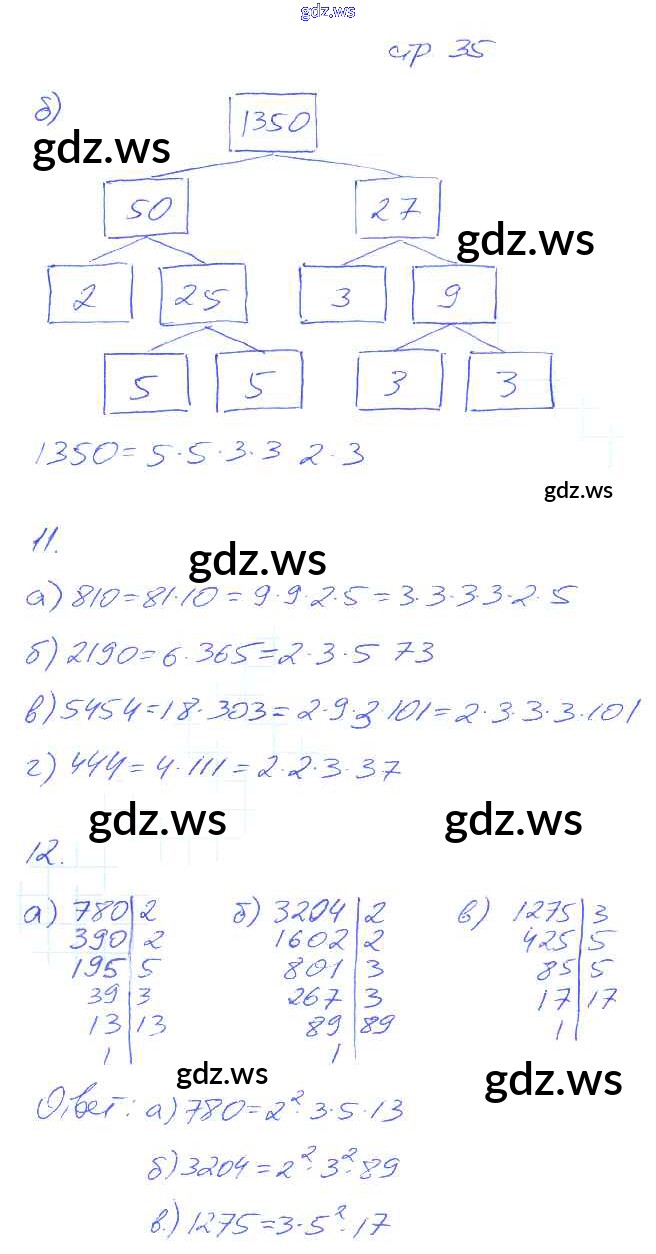 gdz.ws
стр 35
б)
1350
gdz.ws
50 27
gdz.ws
2 25 3 9
5 5 3 3
1350=5·5·3·3 2·3
gdz.ws
11.
gdz.ws
а) 810=81·10=9·9·2·5=3·3·3·3·2·5
б) 2190=6·365=2·3·5 73
в) 5454=18·303=2·9·3 101=2·3·3·3·101
г) 444=4·111=2·2·3·37
gdz.ws gdz.ws
12.
а) 780|2 б) 3204|2 в) 1275|3
390|2 1602|2 425|5
195|5 801|3 85|5
39|3 267|3 17|17
13|13 89|89 1|
1| 1|
gdz.ws gdz.ws
Ответ: а) 780=2²·3·5·13
б) 3204=2²·3²·89
в.) 1275=3·5²·17